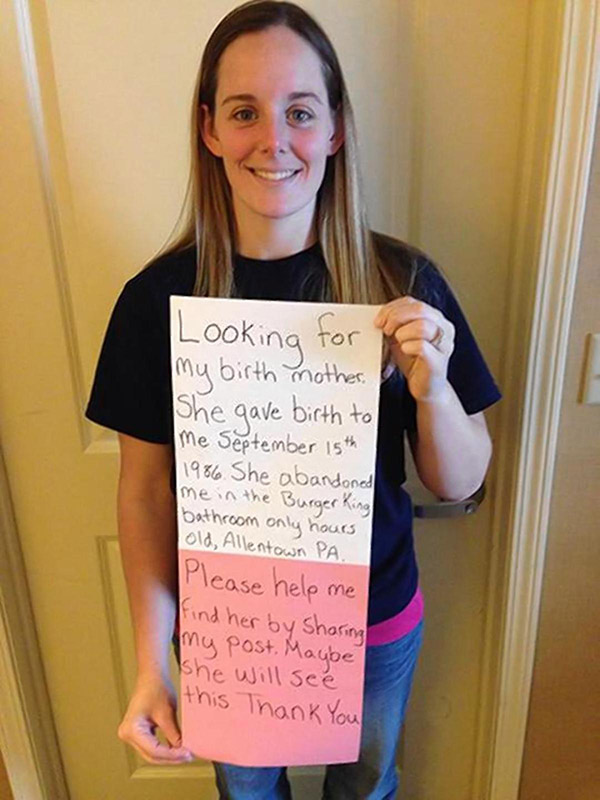 Looking for
my birth mother.
She gave birth to
me September 15th
1986. She abandoned
me in the Burger King
bathroom only hours
old, Allentown PA.
Please help me
find her by Sharing
my post. Maybe
she will see
this Thank You